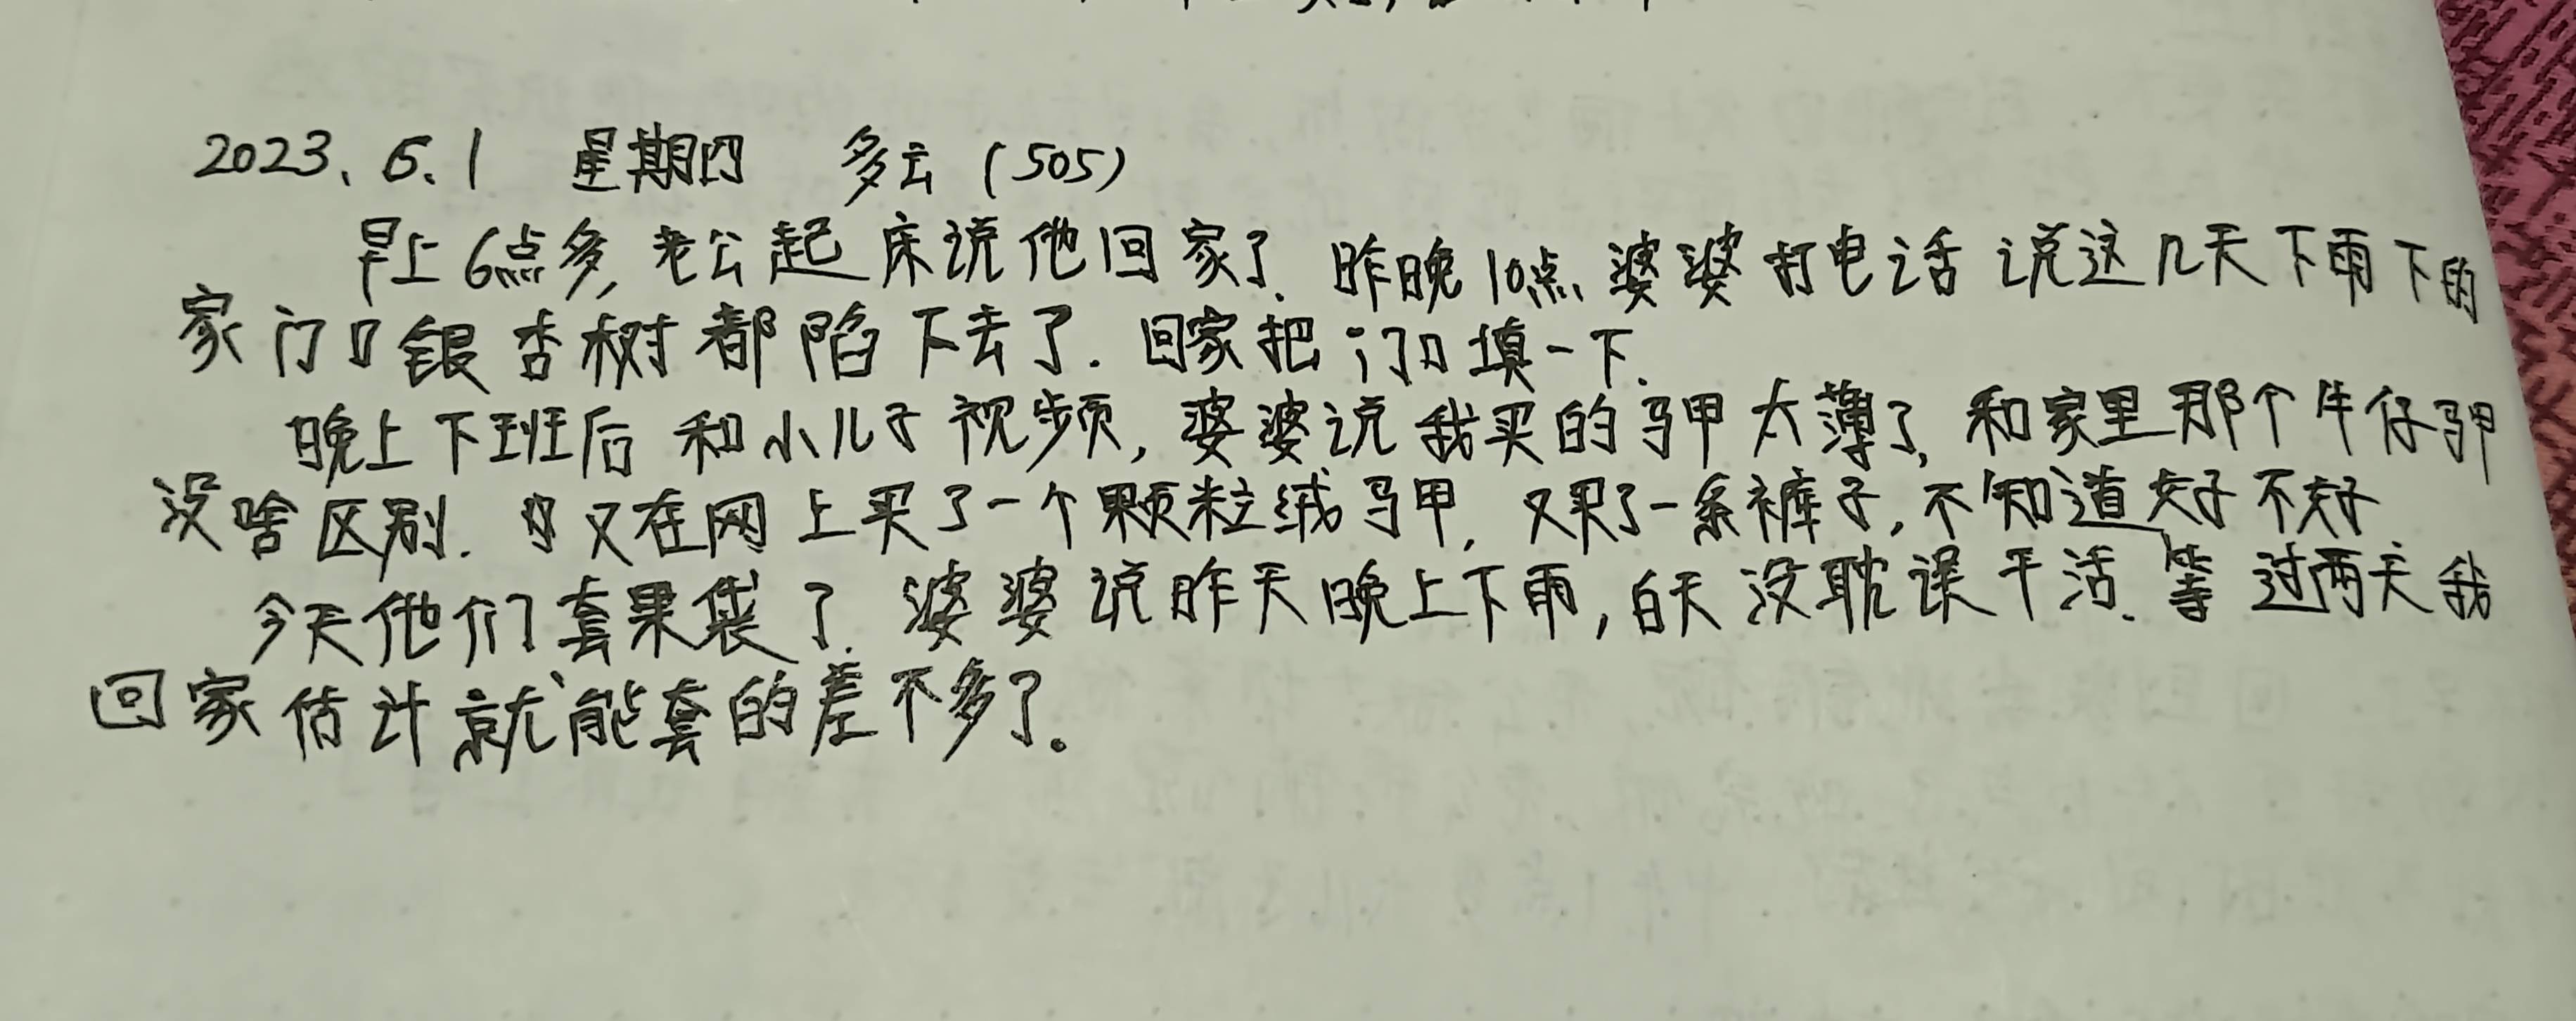 2023、6.1 星期四 多云(505)
早上6点多,老公起床说他回家了.昨晚10点婆婆打电话说这几天下雨下的
家门口银杏树都陷下去了.回家把门口填一下.
晚上下班后和小儿子视频,婆婆说我买的马甲太薄了,和家里那个牛仔马甲
没啥区别.又在网上买了一个颗粒绒马甲,又买了一条裤子,不知道好不好
今天他们套果袋了.婆婆说昨天晚上下雨,白天没耽误干活.等过两天我
回家估计就能套的差不多了。